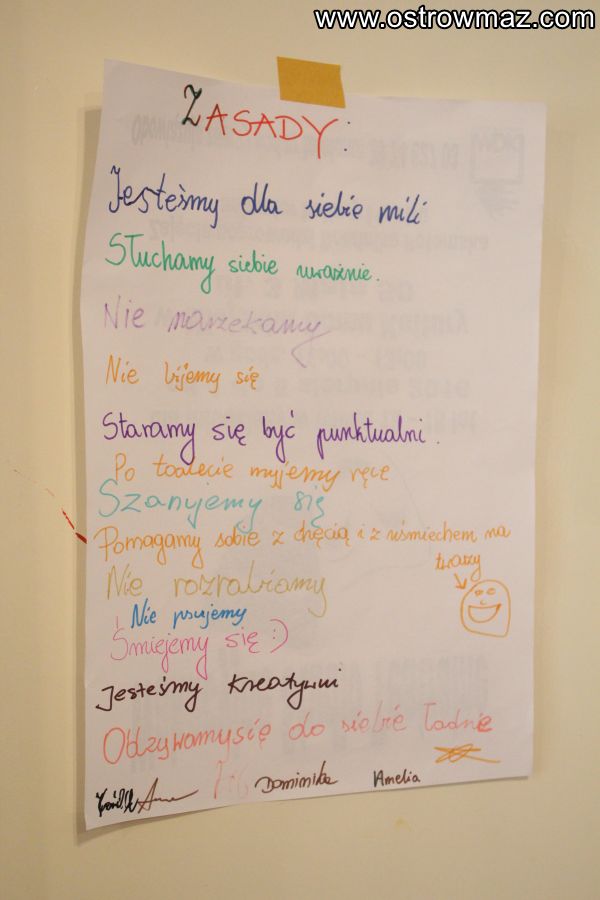 www.ostrowmaz.com
ZASADY:
Jesteśmy dla siebie mili
Słuchamy siebie uważnie.
Nie narzekamy
Nie bijemy się
Staramy się być punktualni.
Po toalecie myjemy ręce
Szanujemy się
Pomagamy sobie z chęcią i z uśmiechem na
twarzy
Nie rozrabiamy
Nie psujemy
Śmiejemy się :)
Jesteśmy kreatywni
Odzywamysię do siebie ładnie
Dominika Amelia